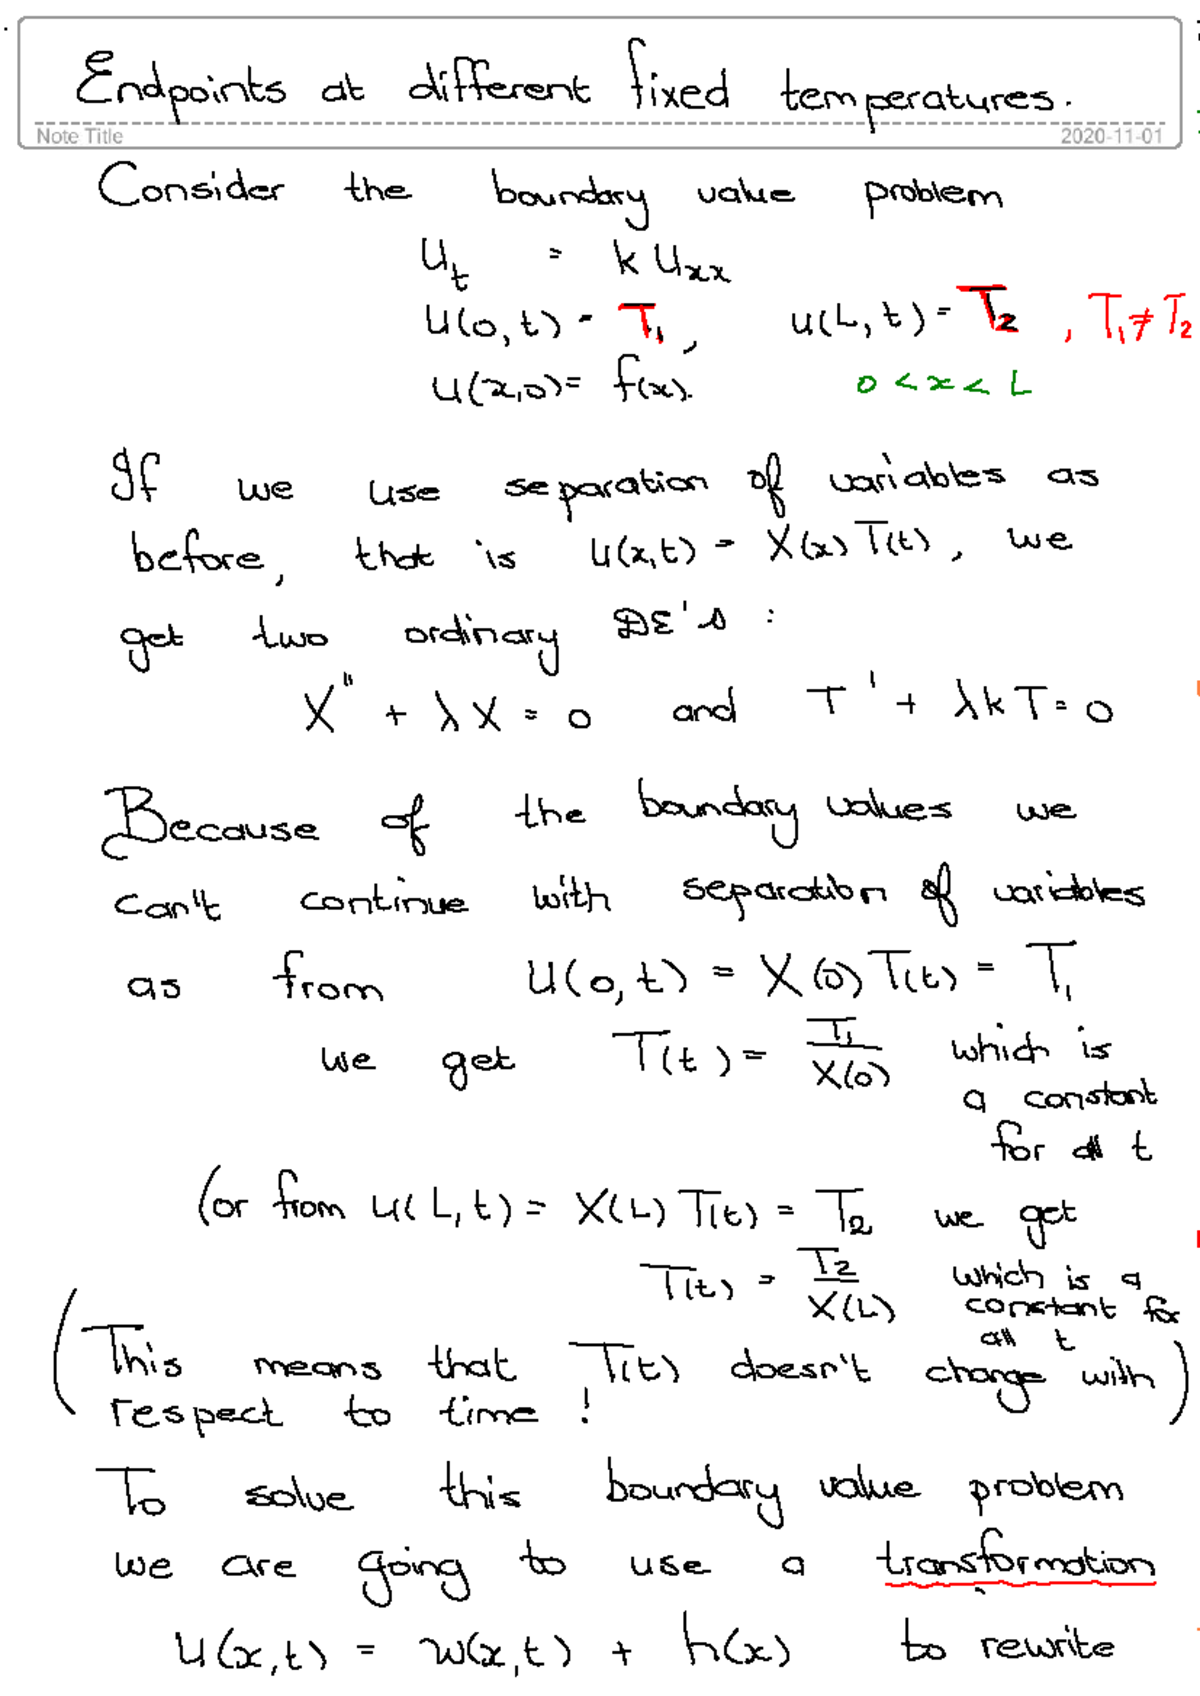 Endpoints at different fixed temperatures.
Note Title 2020-11-01
Consider the boundary value problem
u_t = k u_xx
u(0,t) = T_1, u(L,t) = T_2 , T_1 ≠ T_2
u(x,0) = f(x). 0 < x < L
If we use separation of variables as
before, that is u(x,t) = X(x)T(t), we
get two ordinary DE's :
X'' + λX = 0 and T' + λkT = 0
Because of the boundary values we
can't continue with separation of variables
as from u(0,t) = X(0)T(t) = T_1
we get T(t) = T_1/X(0) which is
a constant
for all t
(or from u(L,t) = X(L)T(t) = T_2 we get
T(t) = T_2/X(L) which is a
constant for
all t
(This means that T(t) doesn't change with)
respect to time !
To solve this boundary value problem
we are going to use a transformation
u(x,t) = w(x,t) + h(x) to rewrite